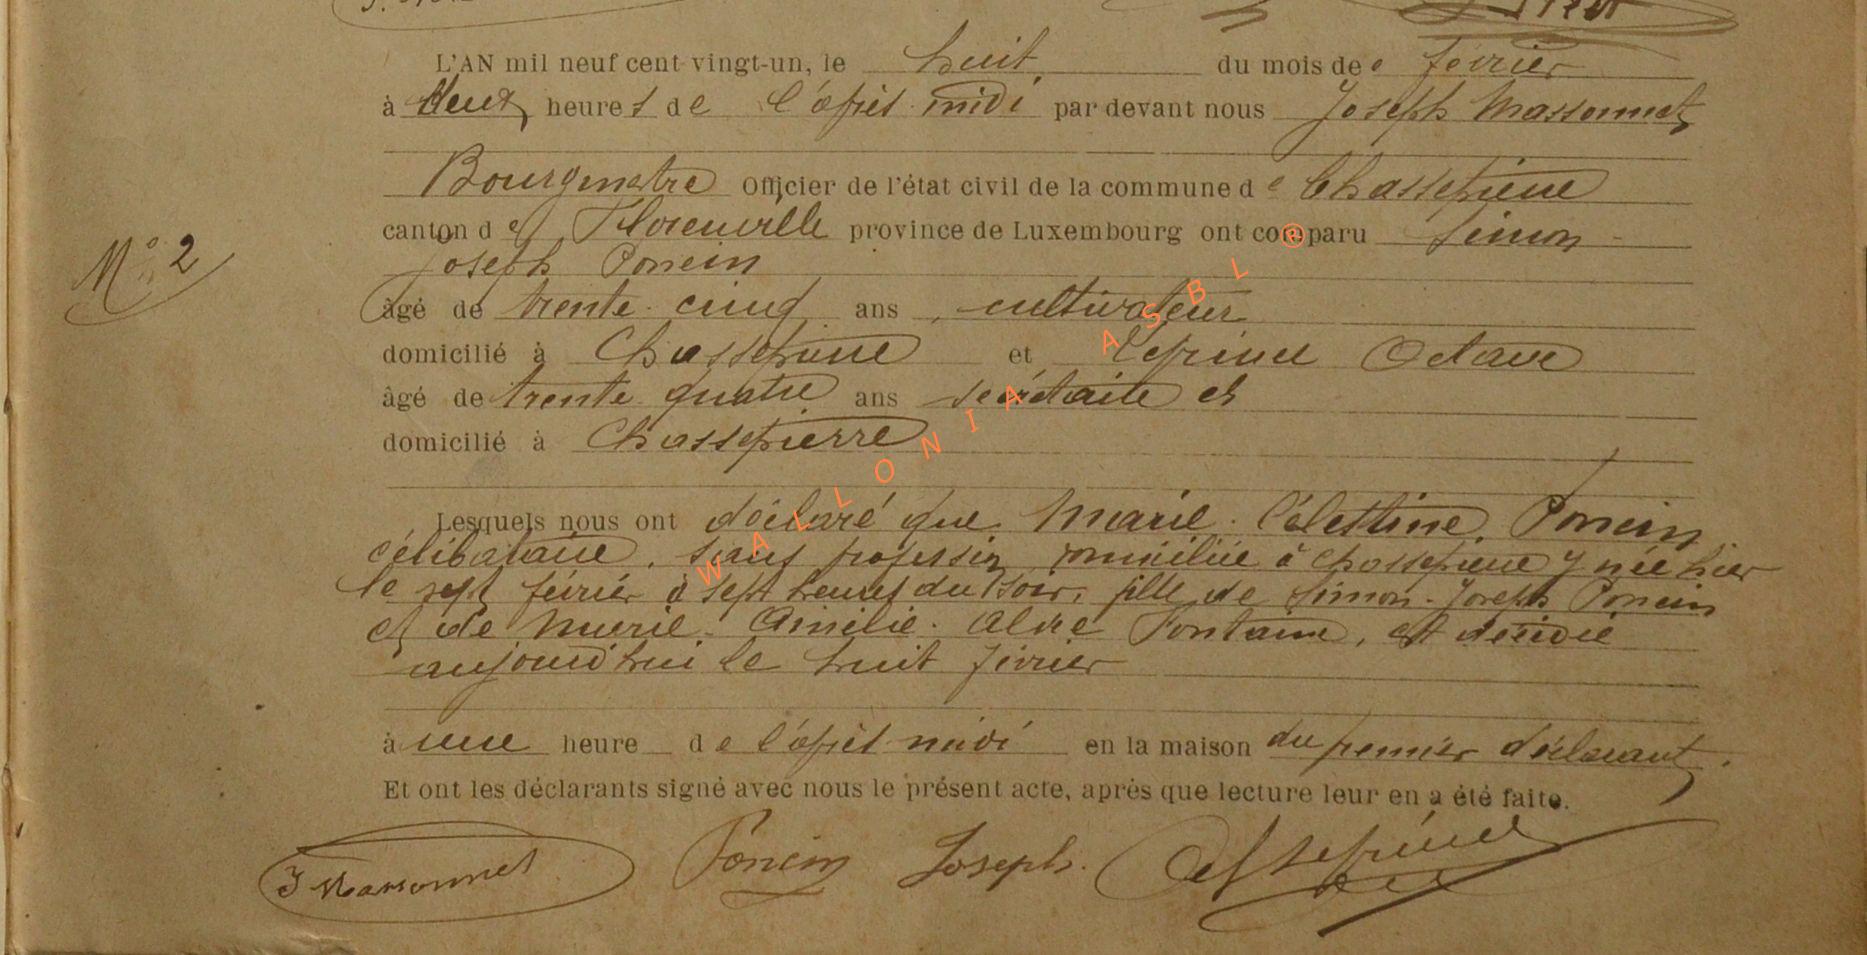 L'AN mil neuf cent vingt-un, le huit du mois de février
à deux heures de l'après midi par devant nous Joseph Massonnet
Bourgmestre Officier de l'état civil de la commune de Chassepierre
canton de Florenville province de Luxembourg ont comparu Simon-
Joseph Poncin
N° 2
âgé de trente-cinq ans, cultivateur
domicilié à Chassepierre et Octave
âgé de trente quatre ans secrétaire et
domicilié à Chassepierre
Lesquels nous ont déclaré que Marie-Célestine Poncin
célibataire, sans profession, domiciliée à Chassepierre y née hier
le sept février à sept heures du soir, fille de Simon-Joseph Poncin
et de Marie-Amélie-Alice Fontaine, est décédée
aujourd'hui le huit février
à une heure de l'après-midi en la maison du premier déclarant.
Et ont les déclarants signé avec nous le présent acte, après que lecture leur en a été faite.
J Massonnet Poncin Joseph.
WALLONIA ASBL ©